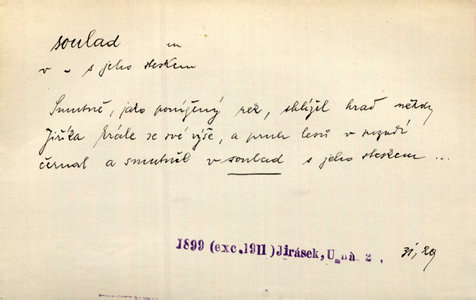 soulad m
v – s jeho steskem
Smutně, jako ponížený rek, shlížel hrad někdy
Jiříka krále se své výše, a pruh lesů v pozadí
černal a smutněl v soulad s jeho steskem ...
1899 (exc.1911) Jirásek, U_nás 2. 31, 29